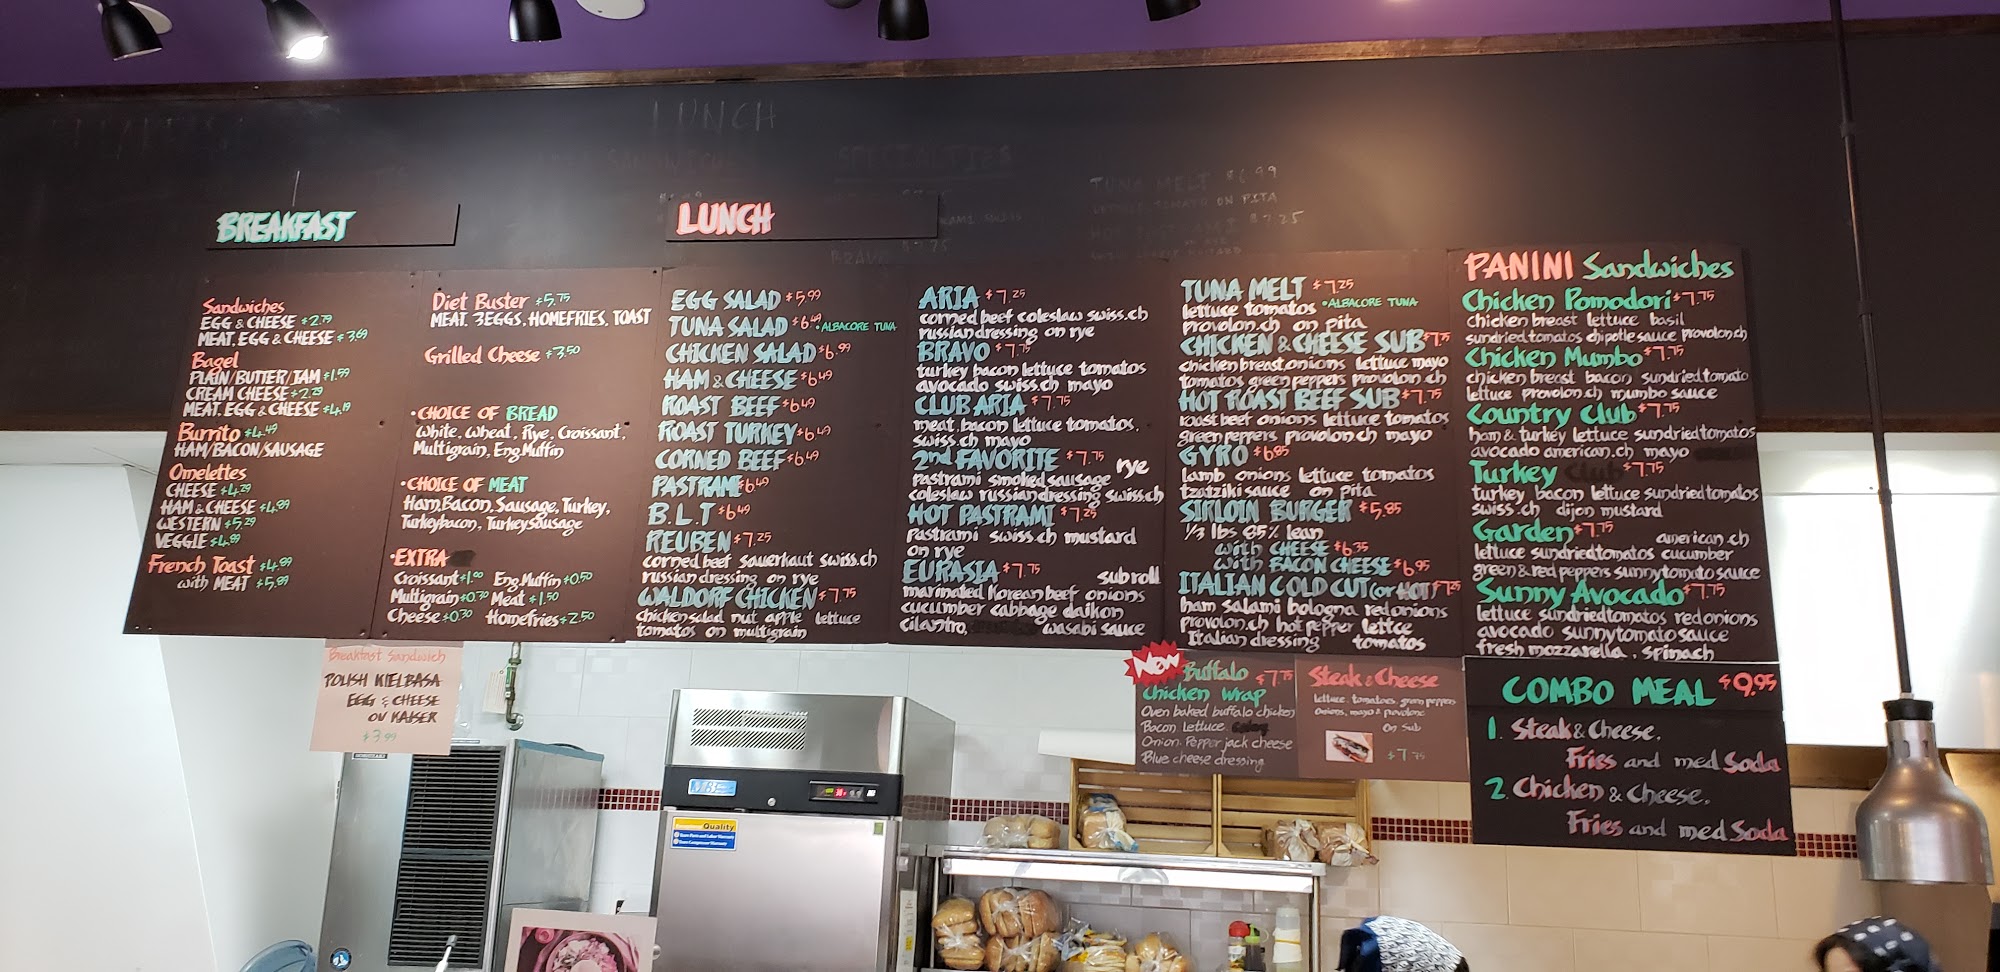 LUNCH
TUNA MELT $6.99
BREAKFAST
Sandwiches
EGG & CHEESE $2.79
MEAT, EGG & CHEESE $3.69
Bagel
PLAIN/BUTTER/JAM $1.59
CREAM CHEESE $2.29
MEAT, EGG & CHEESE $4.19
Burrito $4.49
HAM/BACON/SAUSAGE
Omelettes
CHEESE $4.29
HAM & CHEESE $4.89
WESTERN $5.29
VEGGIE $4.99
French Toast $4.99
with MEAT $5.99
Diet Buster $5.75
MEAT, 3EGGS, HOMEFRIES, TOAST
Grilled Cheese $3.50
•CHOICE OF BREAD
White, Wheat, Rye, Croissant,
Multigrain, Eng.Muffin
•CHOICE OF MEAT
Ham, Bacon, Sausage, Turkey,
Turkeybacon, Turkeysausage
•EXTRA
Croissant $1.00 Eng.Muffin $0.50
Multigrain $0.70 Meat $1.50
Cheese $0.30 Homefries $2.50
Breakfast Sandwich
POLISH KIELBASA
EGG & CHEESE
ON KAISER
$3.99
LUNCH
EGG SALAD $5.99
TUNA SALAD $6.49 •ALBACORE TUNA
CHICKEN SALAD $6.99
HAM & CHEESE $6.49
ROAST BEEF $6.49
ROAST TURKEY $6.49
CORNED BEEF $6.49
PASTRAMI $6.49
B.L.T $6.49
REUBEN $7.25
corned beef sauerkaut swiss.ch
russian dressing on rye
WALDORF CHICKEN $7.75
chicken salad nut apple lettuce
tomatoes on multigrain
ARIA $7.25
corned beef coleslaw swiss.ch
russian dressing on rye
BRAVO $7.75
turkey bacon lettuce tomatos
avocado swiss.ch mayo
CLUB ARIA $7.75
meat, bacon lettuce tomatos,
swiss.ch mayo
2nd FAVORITE $7.75 rye
pastrami smoked sausage
coleslaw russian dressing swiss.ch
HOT PASTRAMI $7.25
pastrami swiss.ch mustard
on rye
EURASIA $7.75 sub roll
marinated Korean beef onions
cucumber cabbage daikon
cilantro, wasabi sauce
TUNA MELT $7.25
lettuce tomatos •ALBACORE TUNA
provolon.ch on pita
CHICKEN & CHEESE SUB $7.75
chicken breast, onions lettuce mayo
tomatos green peppers provolon.ch
HOT ROAST BEEF SUB $7.75
roast beef onions lettuce tomatos
green peppers provolon.ch mayo
GYRO $6.85
lamb onions lettuce tomatos
tzatziki sauce on pita
SIRLOIN BURGER $5.85
1/3 lbs 85% lean
with CHEESE $6.35
with BACON CHEESE $6.95
ITALIAN COLD CUT (or HOT) $7.25
ham salami bologna red onions
provolon.ch hot pepper lettce
Italian dressing tomatos
PANINI Sandwiches
Chicken Pomodori $7.75
chicken breast lettuce basil
sundried tomatos chipotle sauce provolon.ch
Chicken Mumbo $7.75
chicken breast bacon sundried tomato
lettuce provolon.ch mumbo sauce
Country Club $7.75
ham & turkey lettuce sundried tomatos
avocado american.ch mayo
Turkey $7.75
turkey bacon lettuce sundried tomatos
swiss.ch dijon mustard
Garden $7.75 american.ch
lettuce sundried tomatos cucumber
green & red peppers sunny tomato sauce
Sunny Avocado $7.75
lettuce sundried tomatos red onions
avocado sunny tomato sauce
fresh mozzarella, spinach
NEW
Buffalo $7.75
Chicken Wrap
Oven baked buffalo chicken
Bacon Lettuce
Onion Pepper jack cheese
Blue cheese dressing
Steak & Cheese
lettuce, tomatoes, green peppers
onions, mayo & provolone
on sub
$7.75
COMBO MEAL $9.95
1. Steak & Cheese,
Fries and med Soda
2. Chicken & Cheese,
Fries and med Soda
Quality